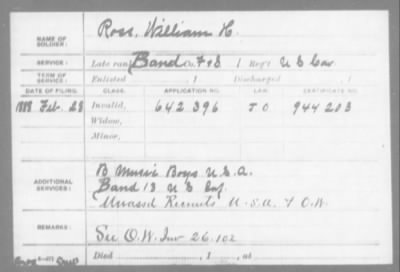 NAME OF SOLDIER: Ross, William H.
SERVICE: Late rank Band Co. F & S 1 Reg't U S Cav
TERM OF SERVICE: Enlisted , 1 Discharged , 1
DATE OF FILING. CLASS. APPLICATION NO. LAW. CERTIFICATE NO.
1888 Feb. 28 Invalid, 642 396 944 203
Widow,
Minor,
ADDITIONAL SERVICES: B Music Boys U.S.A.
Band 13 U S Inf.
Unassd Recruits U.S.A. & O.W.
REMARKS: See O.W. Inv 26.102
Died , 1 , at